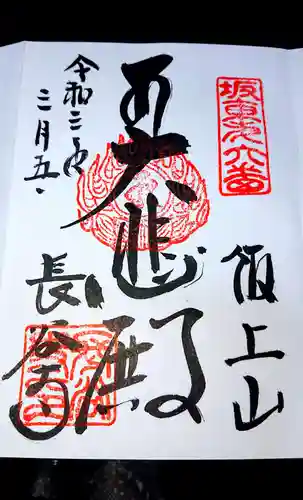 坂東第六番
飯上山
大悲殿
令和二年
三月五日
長谷寺